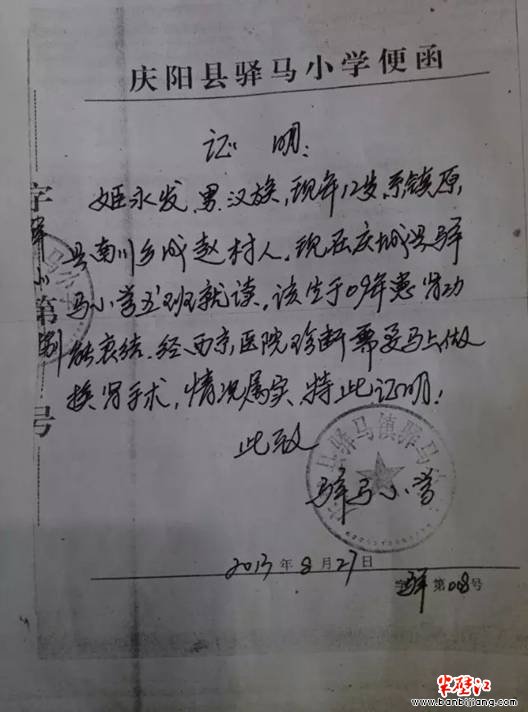 庆阳县驿马小学便函
证 明:
姬永发,男,汉族,现年12岁,系镇原
县南川乡成赵村人,现在庆城县驿
马小学五1班就读,该生于09年患肾功
能衰结,经西京医院珍断需要马上做
换肾手术,情况属实,特此证明!
此致
县驿马镇驿马
驿马小学
2013年8月27日
字驿第008号
字
第
号
半壁江
www.banbijiang.com